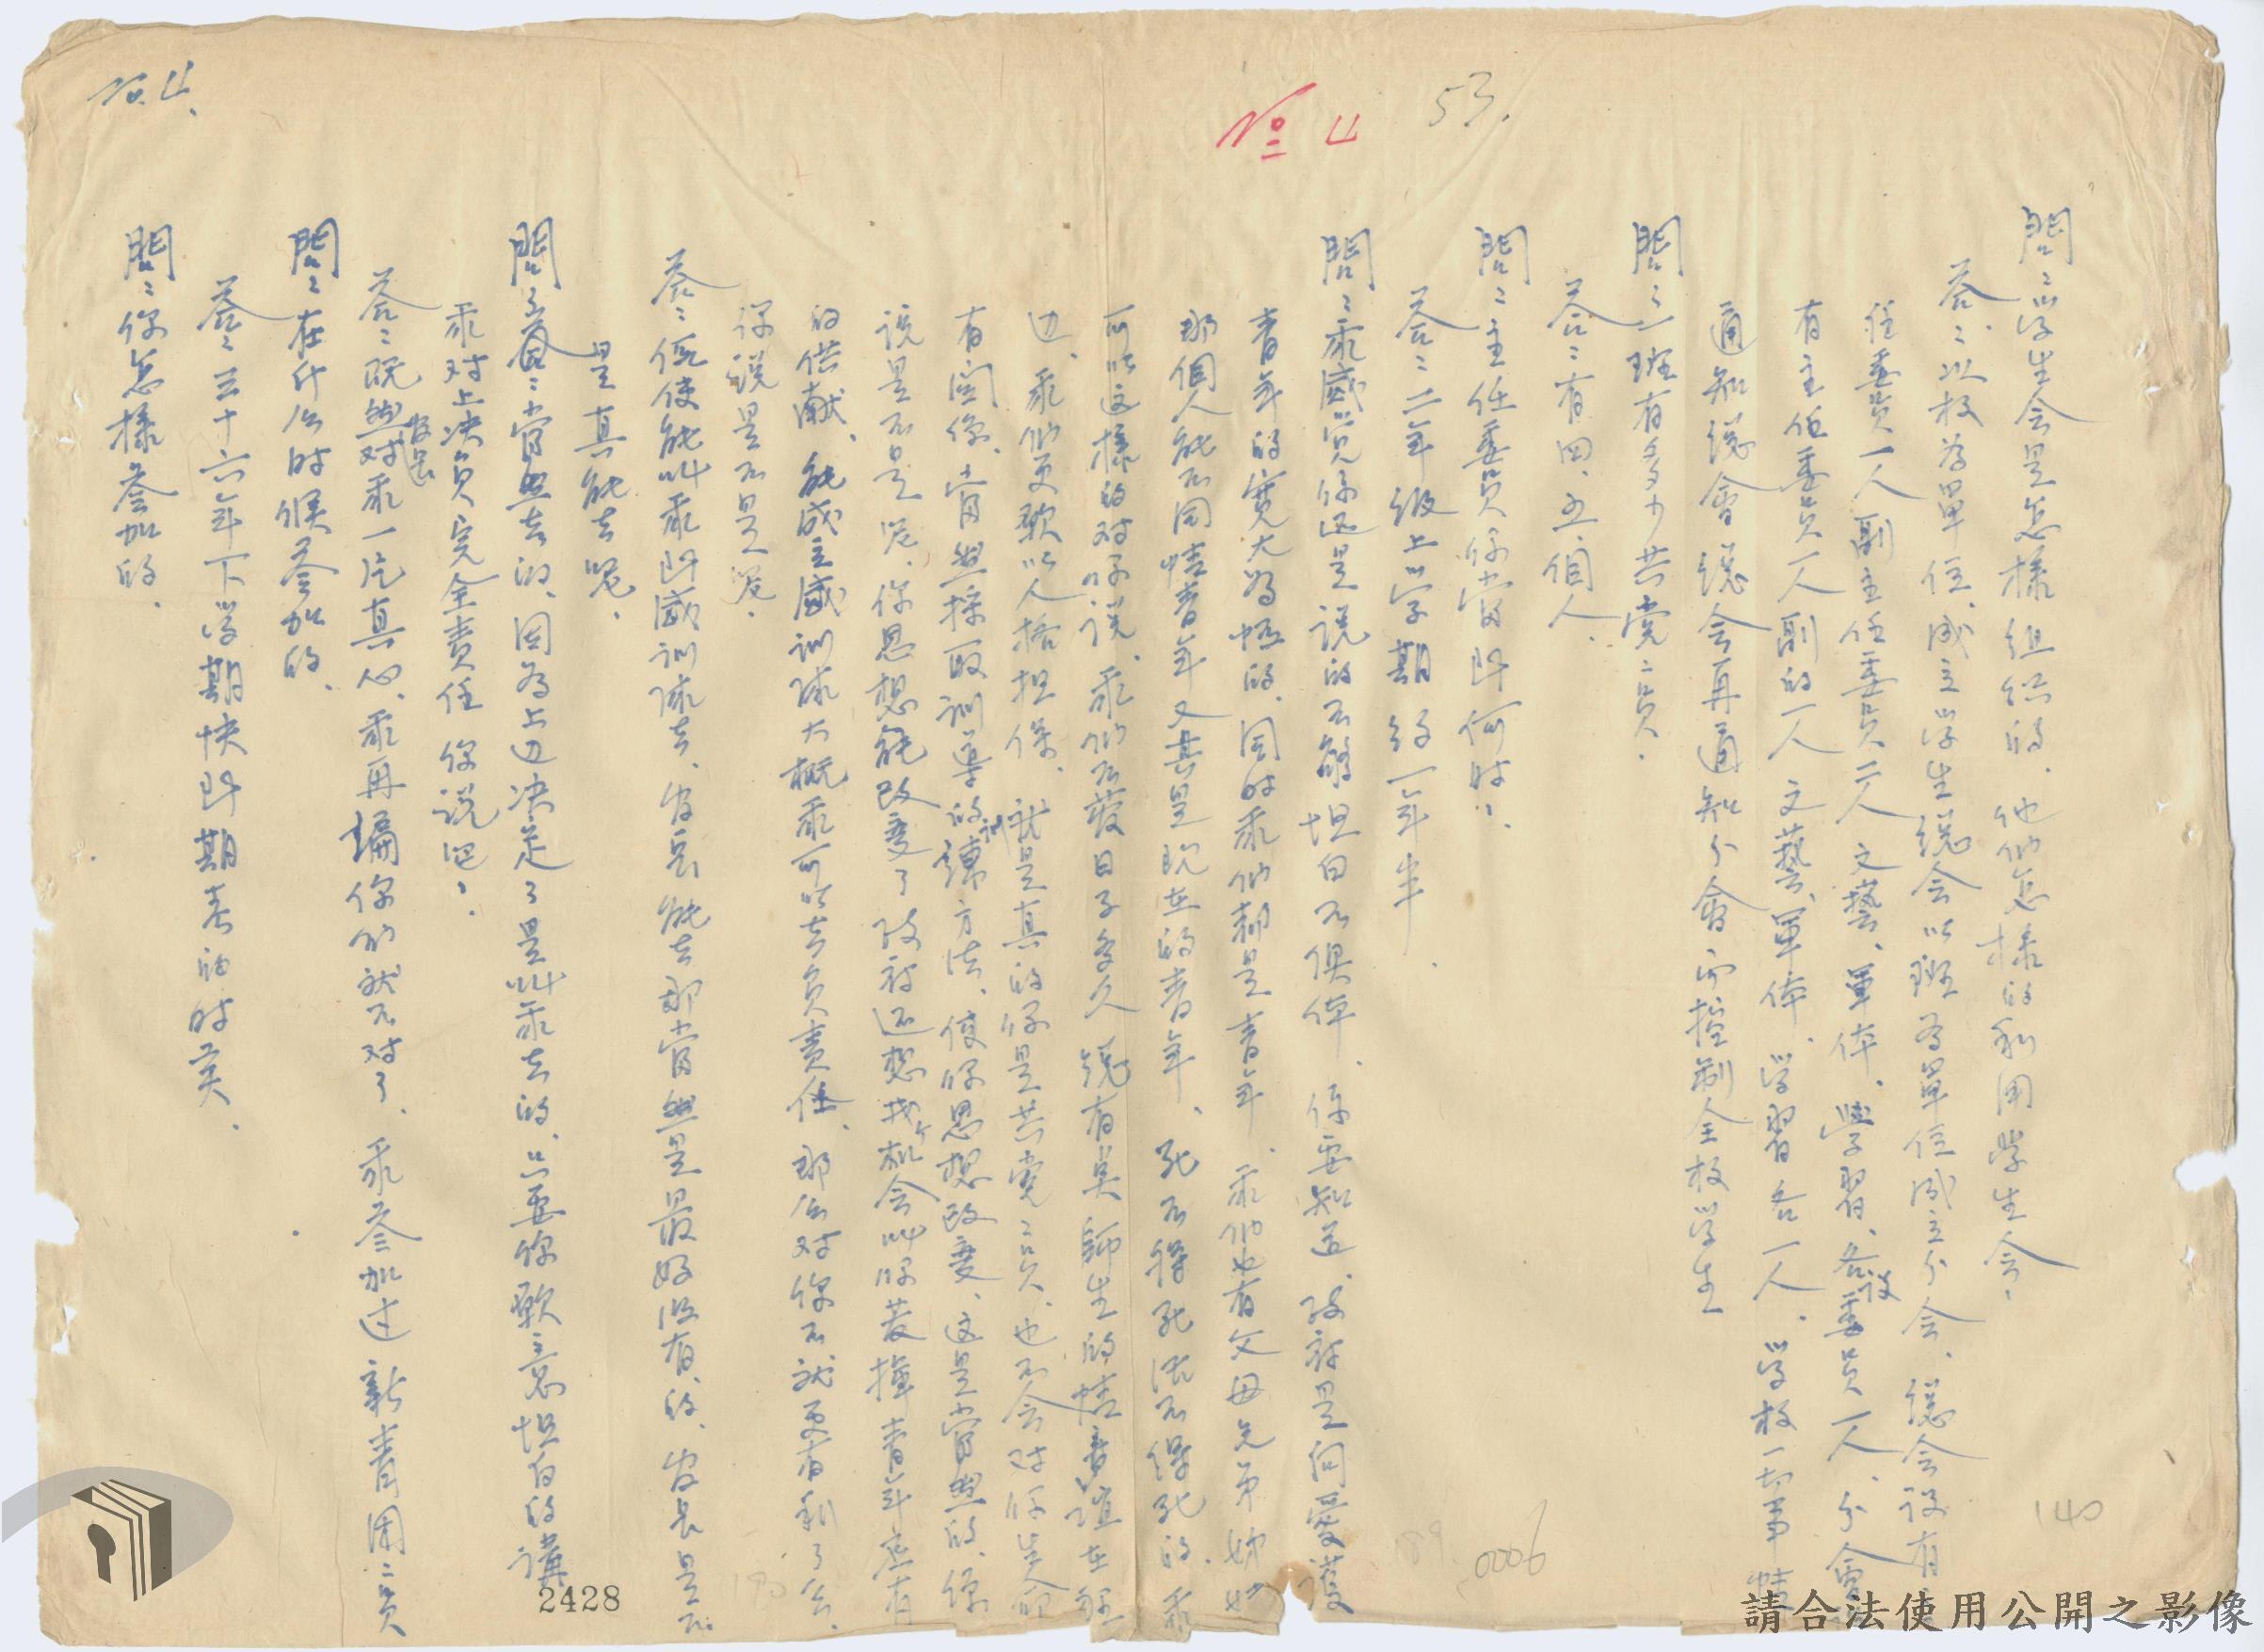 No. 4.
№ 4
53.
問：学生会是怎樣組织的、他们怎樣的利用學生会、
答：以校為單位、成立学生總会以班為單位成立分会、總会设有主
任委员一人副主任委员二人文藝、軍体、學習、各设委员一人、分會
有主任委员一人副的一人文藝、軍体、学習各一人、学校一切事情
通知總會總会再通知分會而控制全校学生
問：一班有多少共党党员、
答：有四、五個人、
問：主任委员你當到何時？
答：二年级上学期约一年半、
問：我感覺你还是说的不夠坦白不俱体、你要知道、政府是向愛護
青年的寬大为怀的、同时我们都是青年、我们也有父母兄弟姊妹
那個人能不同情青年又其是現在的青年、死不得死活不得死的、我
可以这樣的对你说、我们不管日子多久總有莫師生的情意誼在裡
边、我们更敢以人格担保、就是真的你是共党党员、也不会对你生命
有関係、當然採取訓導的訓練方法、使你思想改变、这是當然的、你
说是不是呢、你思想能改变了政府还想找个机会叫你發揮青年应有
的供献、能成立感訓隊大概我可以去负责任、那么对你不就更有利了么、
你说是不是呢、
答：假使能叫我到感訓隊去、皮長能去那當然是最好没有的、皮長是不
是真能去呢、
問：當然去的、因為上边决定了是叫我去的、只要你願意坦白的講
我对上决负完全责任你说吧？
答：既然皮長对我一片真心、我再騙你们就不对了、我参加过新青团团员
問：在什么时候参加的、
答：三十六年下学期快到期考的时矣、
問：你怎樣参加的、
140
189
0006
190
2428
請合法使用公開之影像